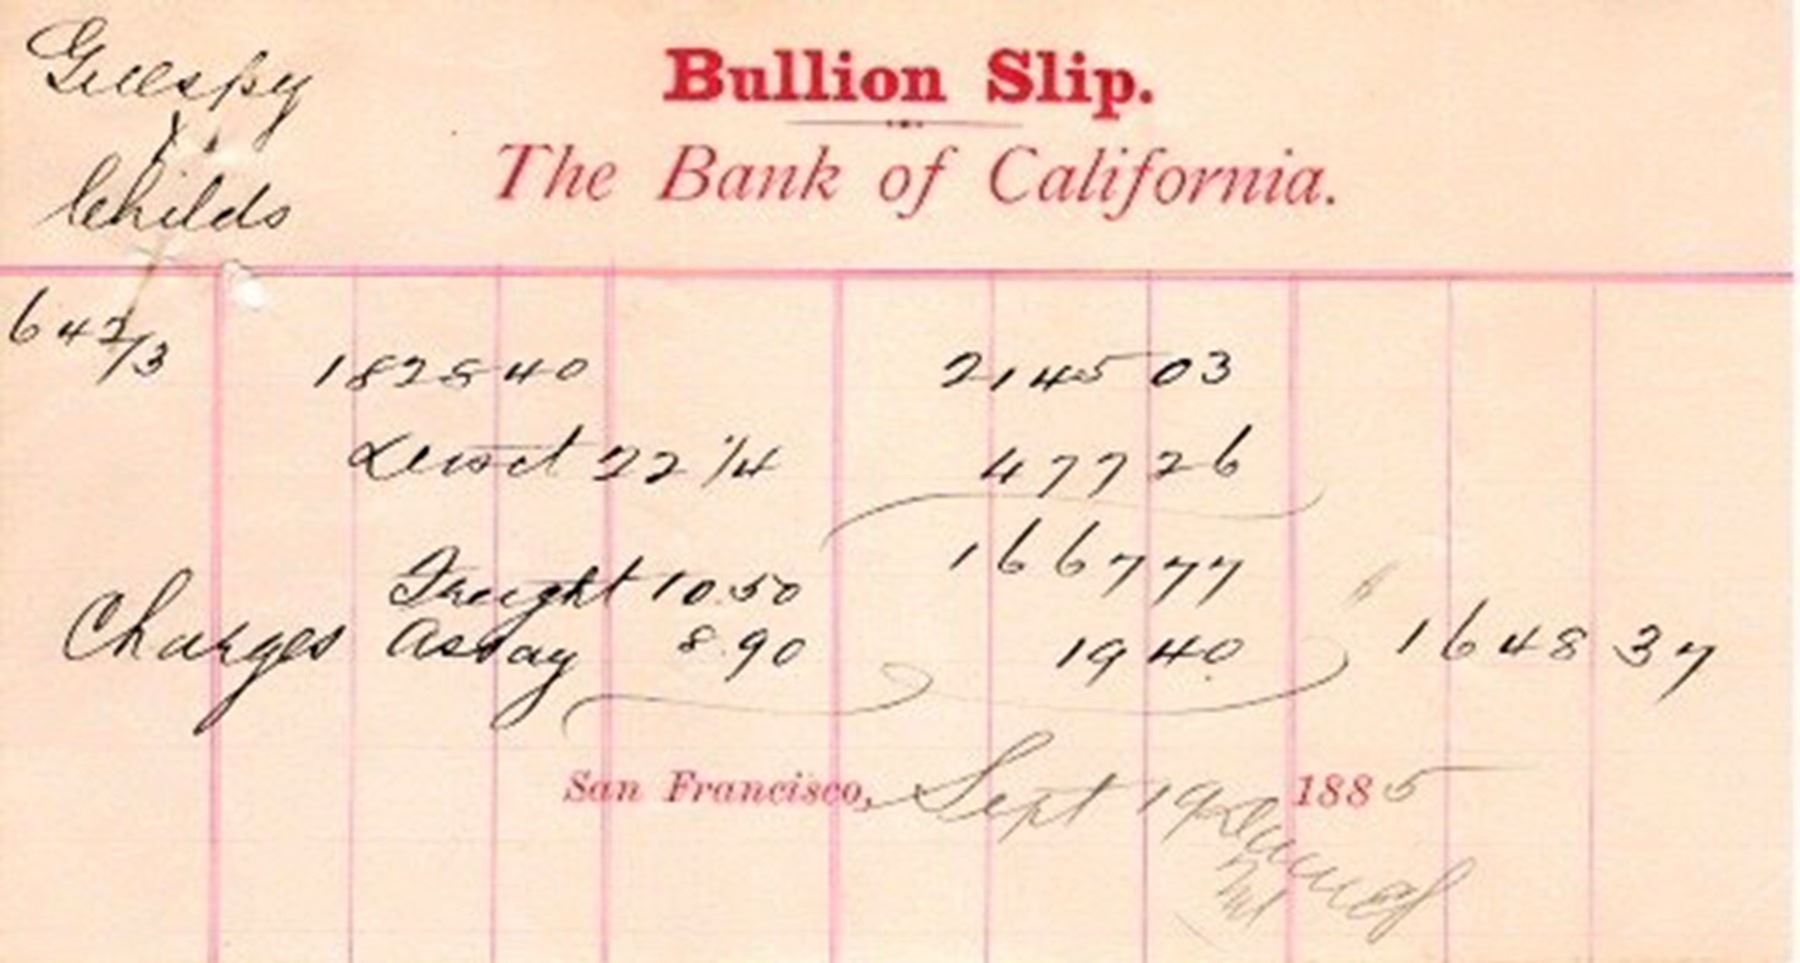 Gillespy
&
Childs
Bullion Slip.
The Bank of California.
642/3
182840 214503
Disct 22 1/4 47726
166777
Freight 10.50
Charges Assay 8.90 1940 1648 37
San Francisco, Sept 19 1885